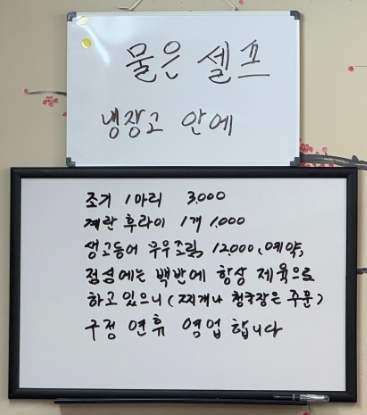 물은 셀프
냉장고 안에
조기 1마리 3,000
계란 후라이 1개 1,000
생고등어 무우조림, 12,000, (예약)
점심에는 백반에 항상 제육으로
하고 있으니 (찌개나 청국장은 주문)
구정 연휴 영업 합니다